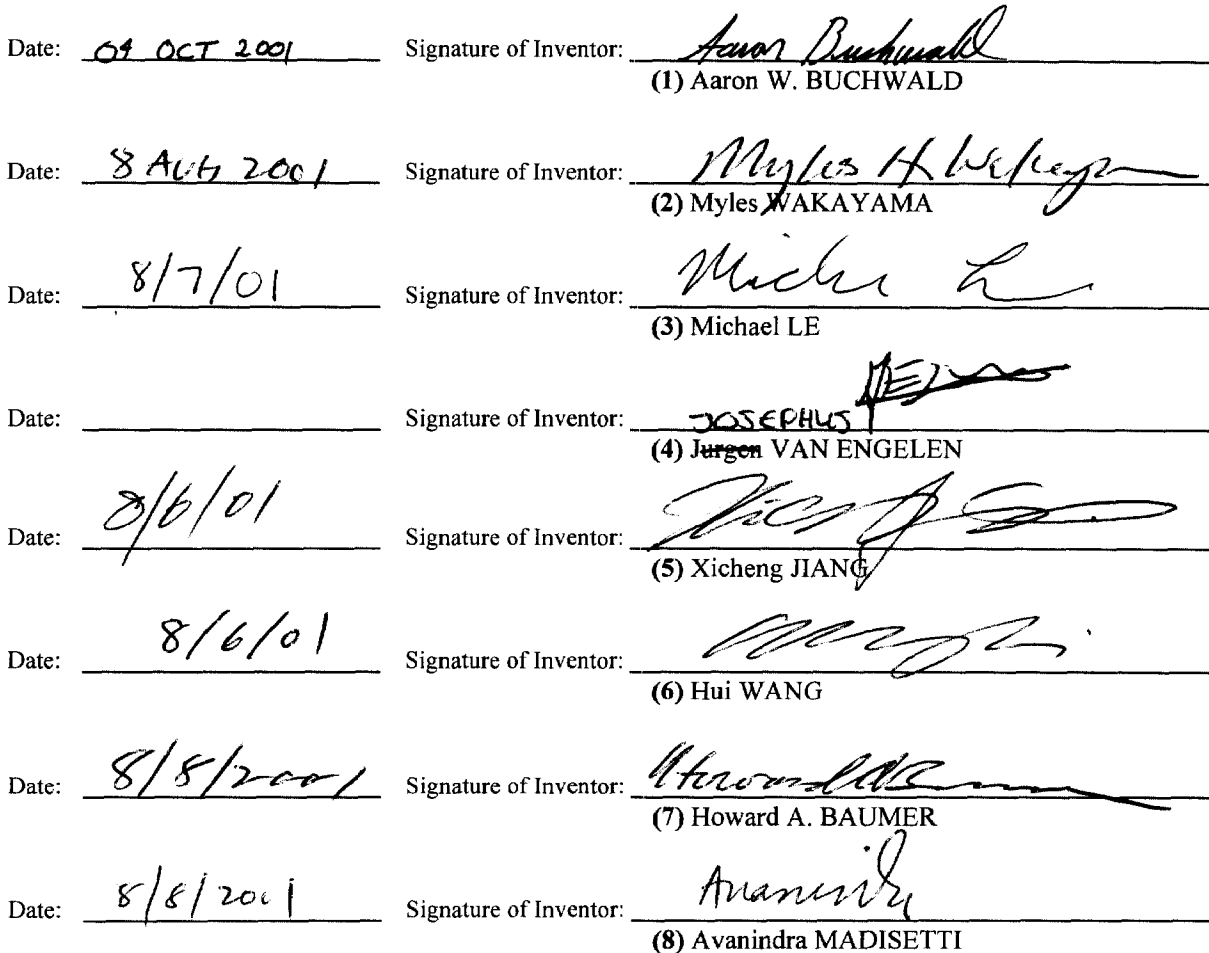 Date: 04 OCT 2001 Signature of Inventor: Aaron Buchwald
(1) Aaron W. BUCHWALD
Date: 8 AUG 2001 Signature of Inventor: Myles H Wakayama
(2) Myles WAKAYAMA
Date: 8/7/01 Signature of Inventor: Michael Le
(3) Michael LE
Date: Signature of Inventor: JOSEPHUS
(4) Jurgen VAN ENGELEN
Date: 8/6/01 Signature of Inventor:
(5) Xicheng JIANG
Date: 8/6/01 Signature of Inventor:
(6) Hui WANG
Date: 8/8/2001 Signature of Inventor: Howard A Baumer
(7) Howard A. BAUMER
Date: 8/8/2001 Signature of Inventor: Avanindra
(8) Avanindra MADISETTI